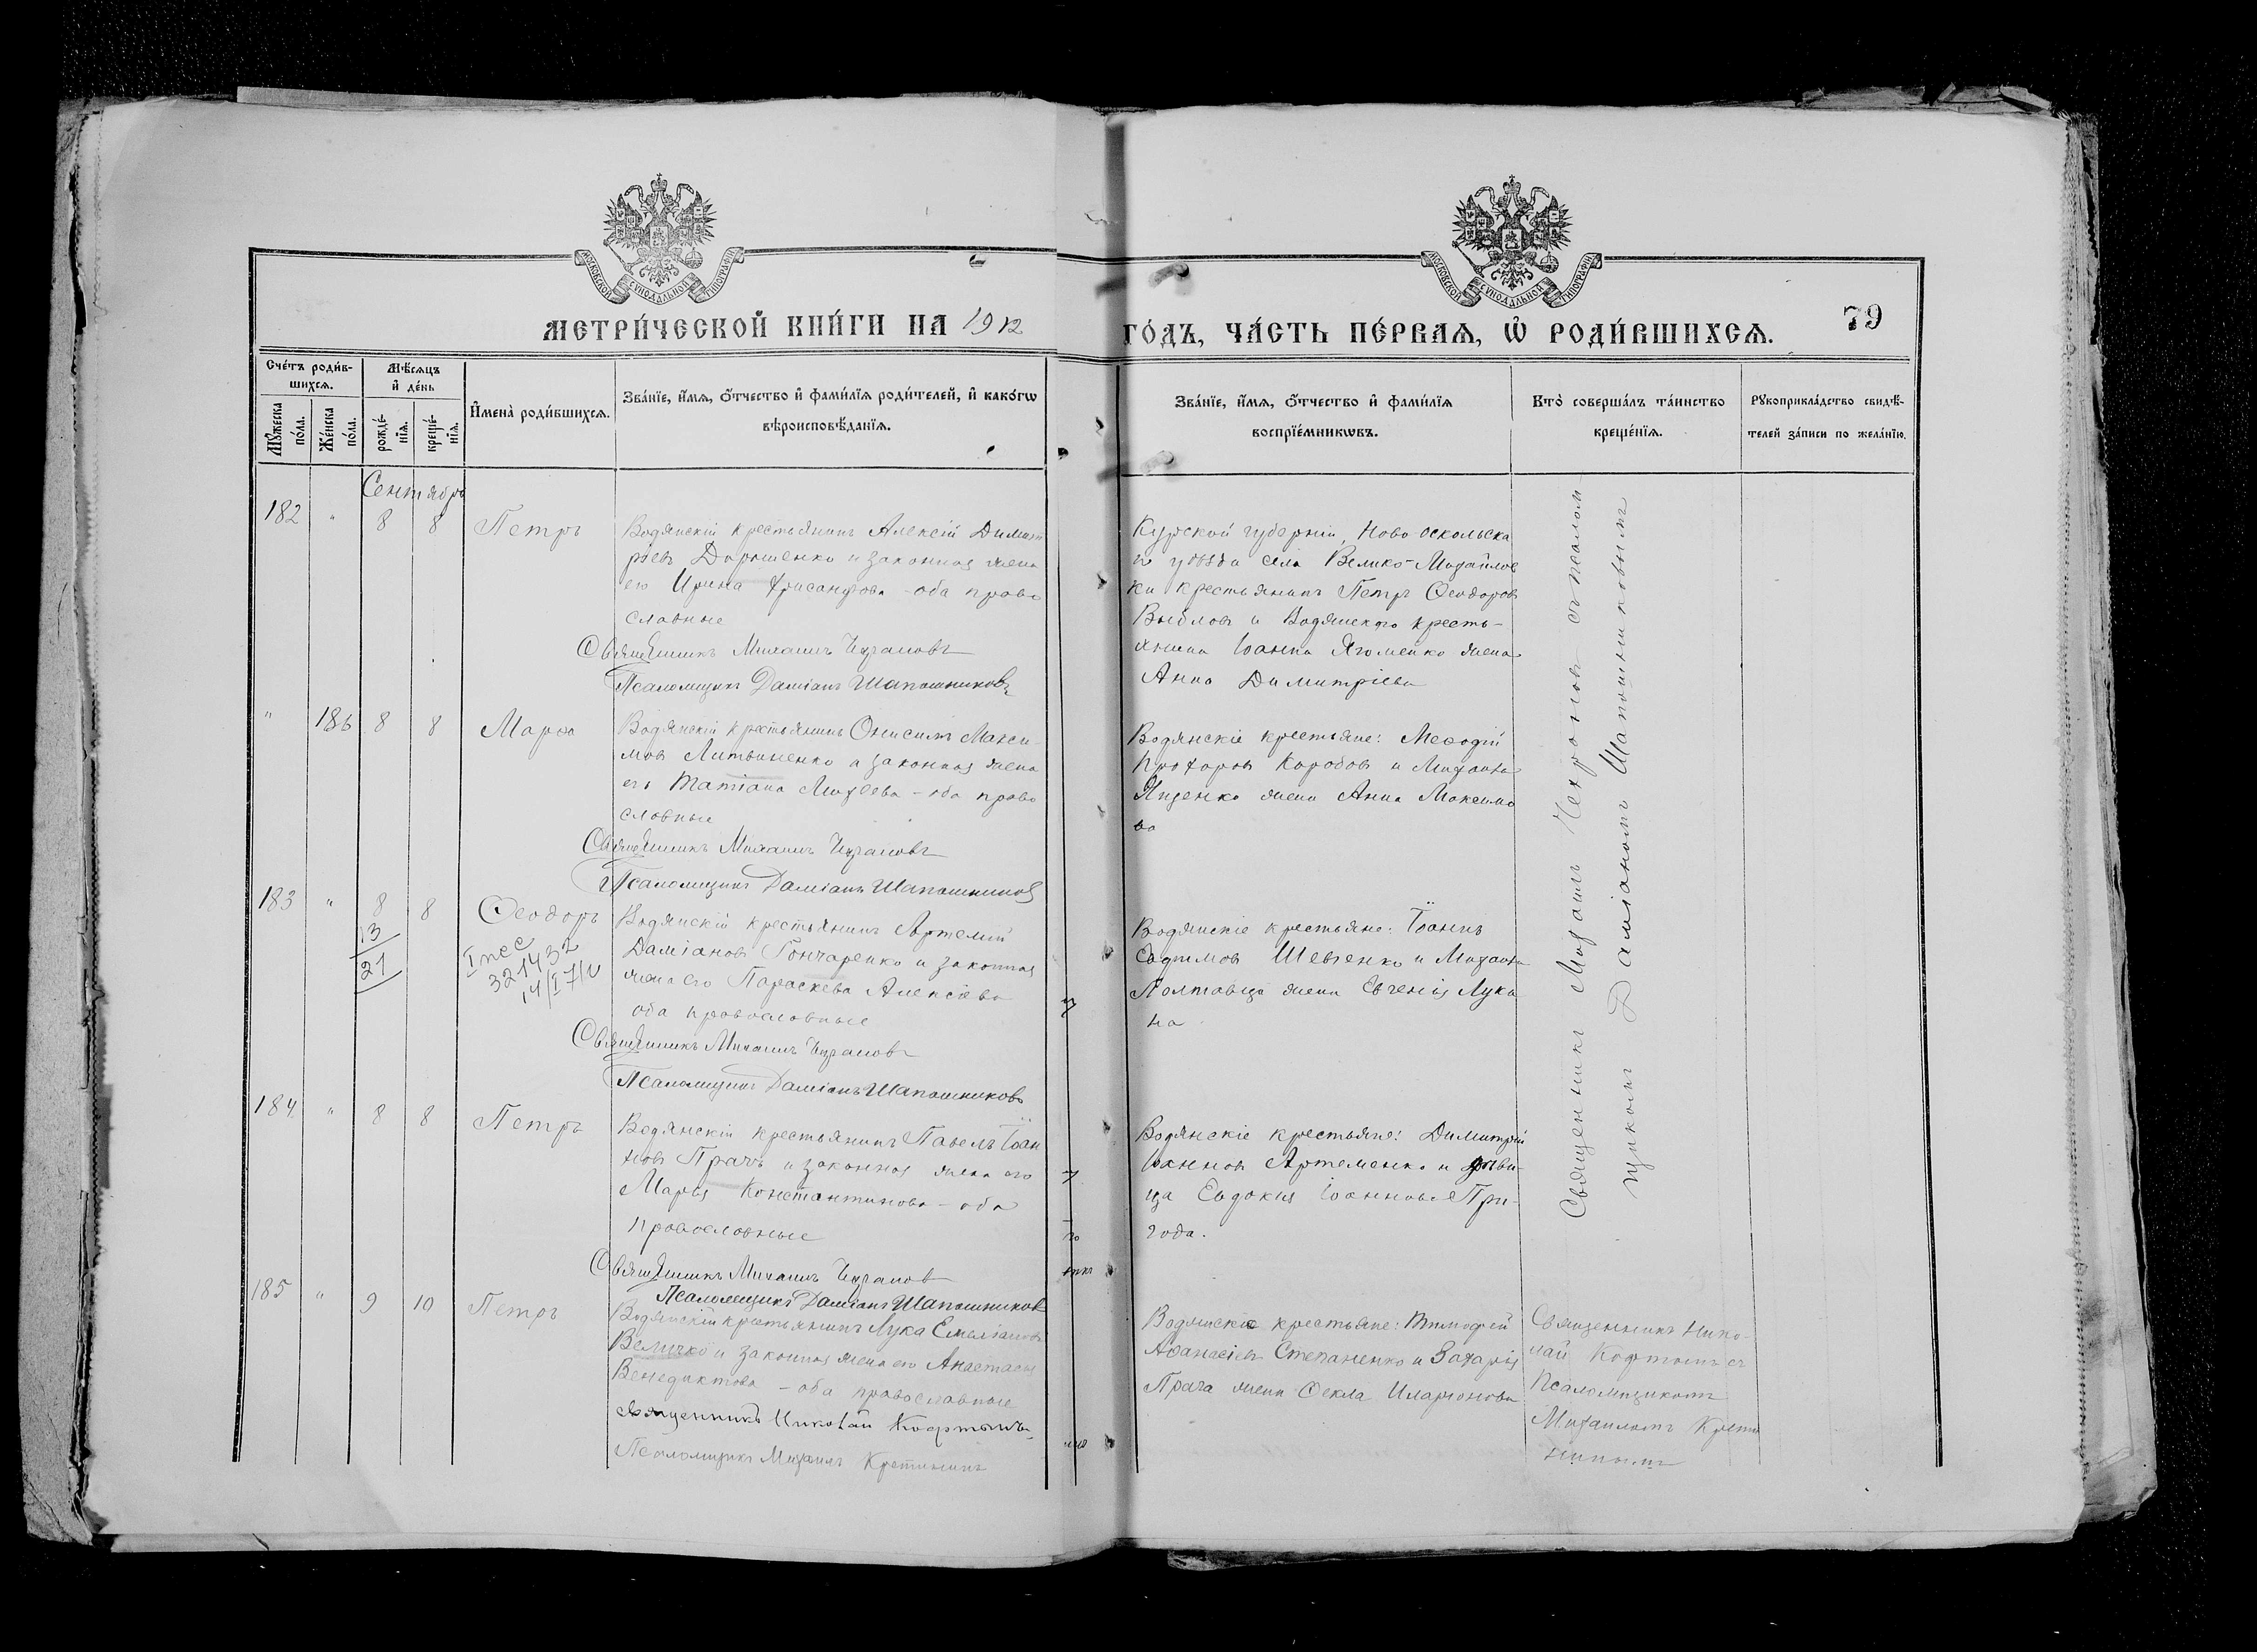 МОСКОВСКОЙ СѴНОДАЛЬНОЙ ТИПОГРАФІИ
МОСКОВСКОЙ СѴНОДАЛЬНОЙ ТИПОГРАФІИ
МЕТРИ́ЧЕСКОЙ КНИ́ГИ НА 1912 ГО́ДЪ, ЧА́СТЬ ПЕ́РВАѦ, Ѡ҆ РОДИ́ВШИХСѦ.
79
Сче́тъ роди́в-
шихсѧ.
Мѣ́сѧцъ
и҆ де́нь
Мꙋ́жеска
по́ла.
Же́нска
по́ла.
рожде́-
нїѧ.
креще́-
нїѧ.
И҆мена̀ роди́вшихсѧ.
Зва́нїе, и҆́мѧ, ѻ҆́тчество и҆ фами́лїѧ роди́телей, и҆ како́гѡ
вѣроисповѣ́данїѧ.
Зва́нїе, и҆́мѧ, ѻ҆́тчество и҆ фами́лїѧ
воспрїе́мникѡвъ.
Кто̀ соверша́лъ та́инство
креще́нїѧ.
Рꙋкоприкла́дство свидѣ́-
телей за́писи по жела́нїю.
Сентябрь
182 " 8 8 Петръ
Водянскій крестьянинъ Алексій Димит
ріевъ Дорошенко и законная жена
его Ирина Хрисанфова - оба право
славные
Священникъ Михаилъ
Псаломщикъ Даміанъ Шапошниковъ
Курской губерніи, Ново-оскольска
го уѣзда села Велико-Михайлов
ки крестьянинъ Петръ Ѳеодоровъ
и Водянскаго кресть-
янина Іоанна жена
Анна Димитріева
" 186 8 8 Марѳа
Водянскій крестьянинъ Онисимъ Макси-
мовъ Литвиненко и законная жена
его Татіана - оба право
славные
Священникъ Михаилъ
Псаломщикъ Даміанъ Шапошниковъ
Водянскіе крестьяне: Меѳодій
Прохоровъ Коробовъ и Михаила
Яценко жена Анна Максимо
ва
183 " 8 8 Ѳеодоръ
13
21
321432
Водянскій крестьянинъ Артемій
Даміановъ Гончаренко и законная
жена его Параскева Алексіева
оба православные
Священникъ Михаилъ
Псаломщикъ Даміанъ Шапошниковъ
Водянскіе крестьяне: Іоаннъ
Евфимовъ Шевченко и Михаила
Полтавца жена Евгенія Луки
на
184 " 8 8 Петръ
Водянскій крестьянинъ Павелъ Іоан
новъ Прачъ и законная жена его
Марія Константинова - оба
православные
Священникъ Михаилъ
Псаломщикъ Даміанъ Шапошниковъ
Водянскіе крестьяне: Димитрій
Іоанновъ Артеменко и дѣви-
ца Евдокія Іоаннова При-
года.
Священникъ Михаилъ съ псалом
щикомъ Даміаномъ Шапошниковымъ
185 " 9 10 Петръ
Водянскій крестьянинъ Лука Емеліановъ
Величко и законная жена его Анастасія
Венедиктова - оба православные
Священникъ Николай
Псаломщикъ Михаилъ Кретининъ
Водянскіе крестьяне: Тимофей
Аѳанасіевъ Степаненко и Захарія
Прача жена Ѳекла Иларіонова
Священникъ Нико-
лай съ
Псаломщикомъ
Михаиломъ Крети
нинымъ